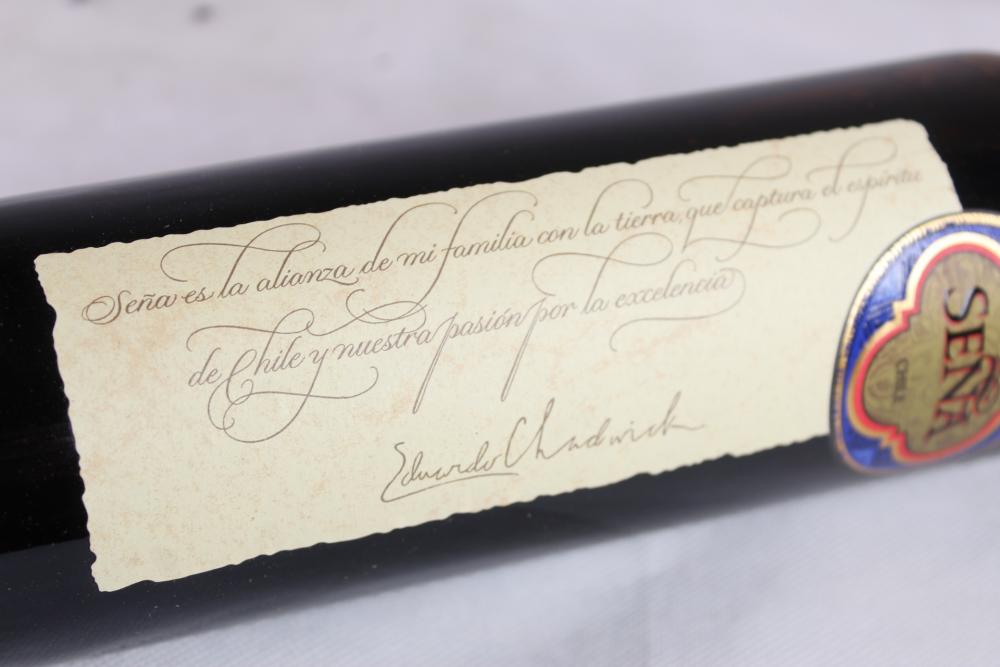 Seña es la alianza de mi familia con la tierra, que captura el espíritu
de Chile y nuestra pasión por la excelencia
Eduardo Chadwick
SEÑA
CHILE